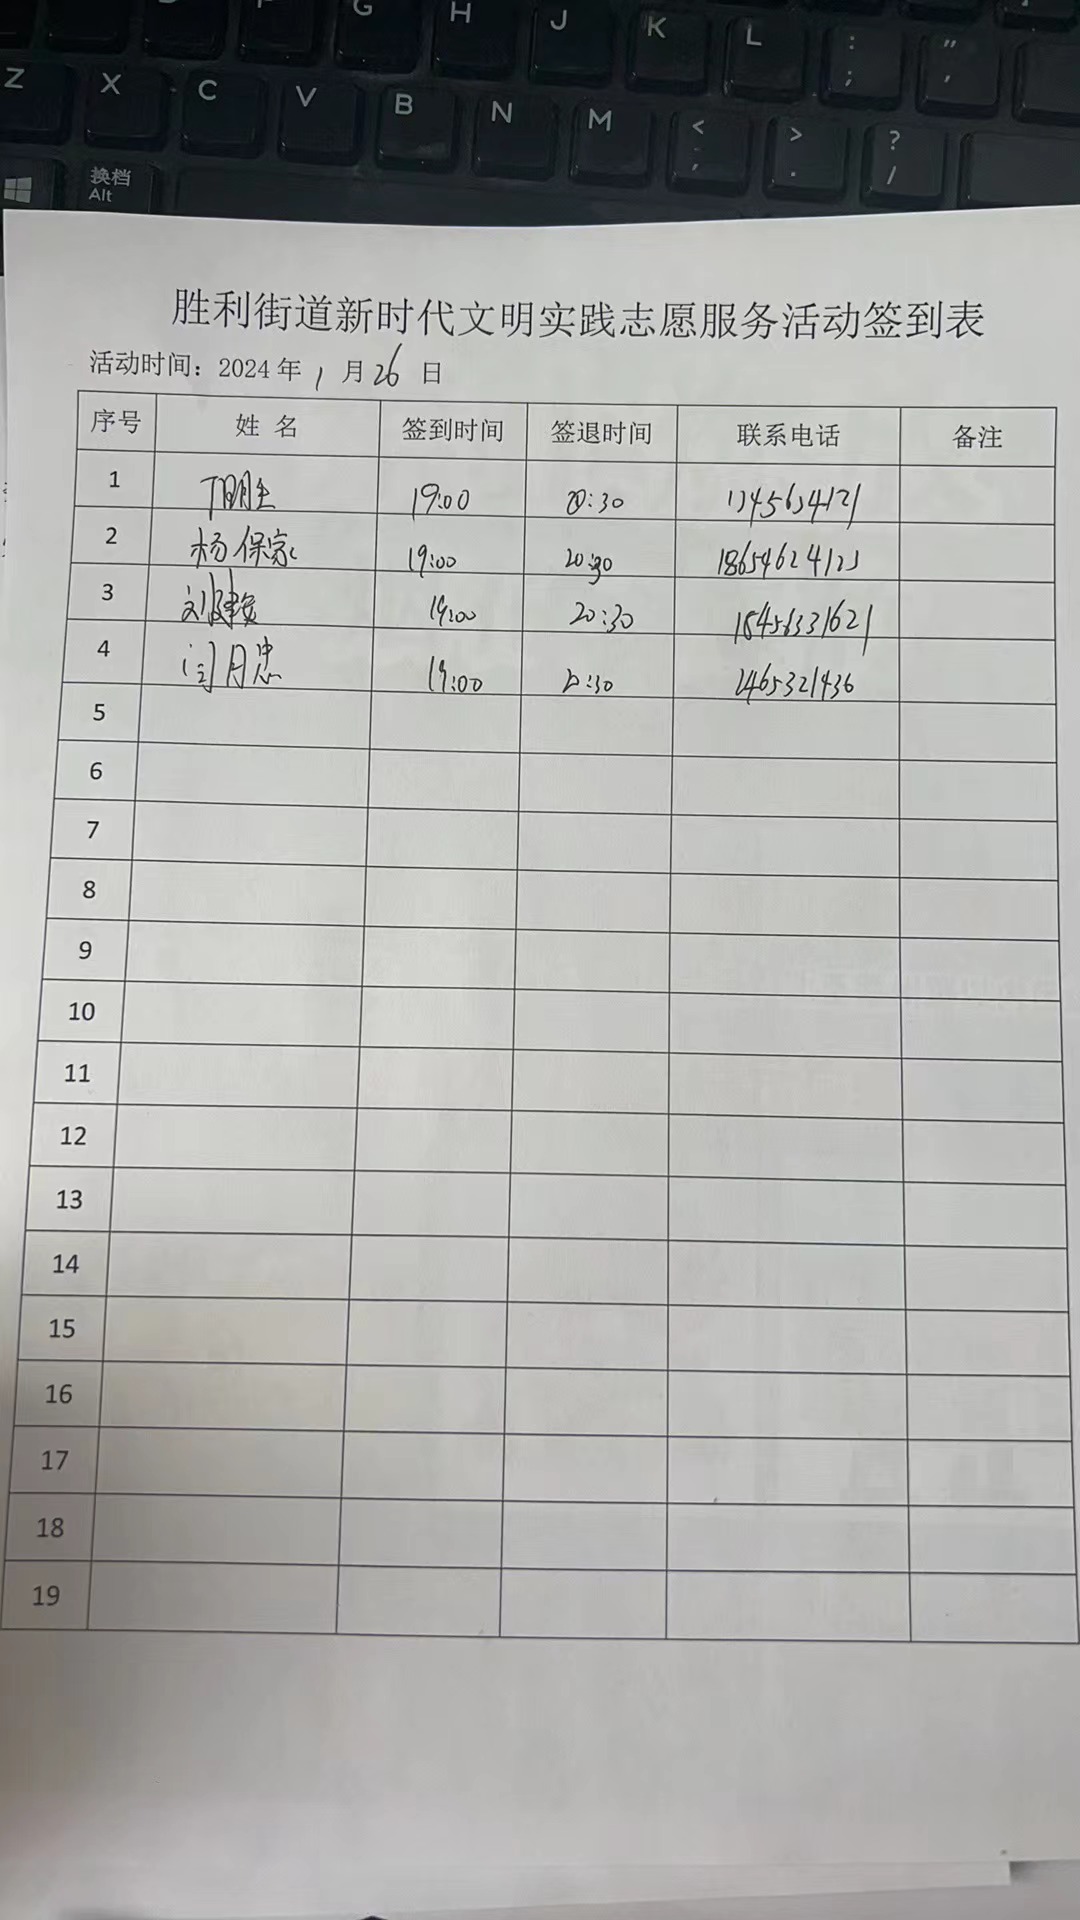 G H J K L : ; " '
Z X C V B N M < , > . ? /
换档
Alt
胜利街道新时代文明实践志愿服务活动签到表
活动时间：2024年 1 月 26 日
序号 姓名 签到时间 签退时间 联系电话 备注
1 丁明生 19:00 20:30
2 杨保家 19:00 20:30
3 刘建安 19:00 20:30 18456331621
4 闫月忠 19:00 20:30
5
6
7
8
9
10
11
12
13
14
15
16
17
18
19